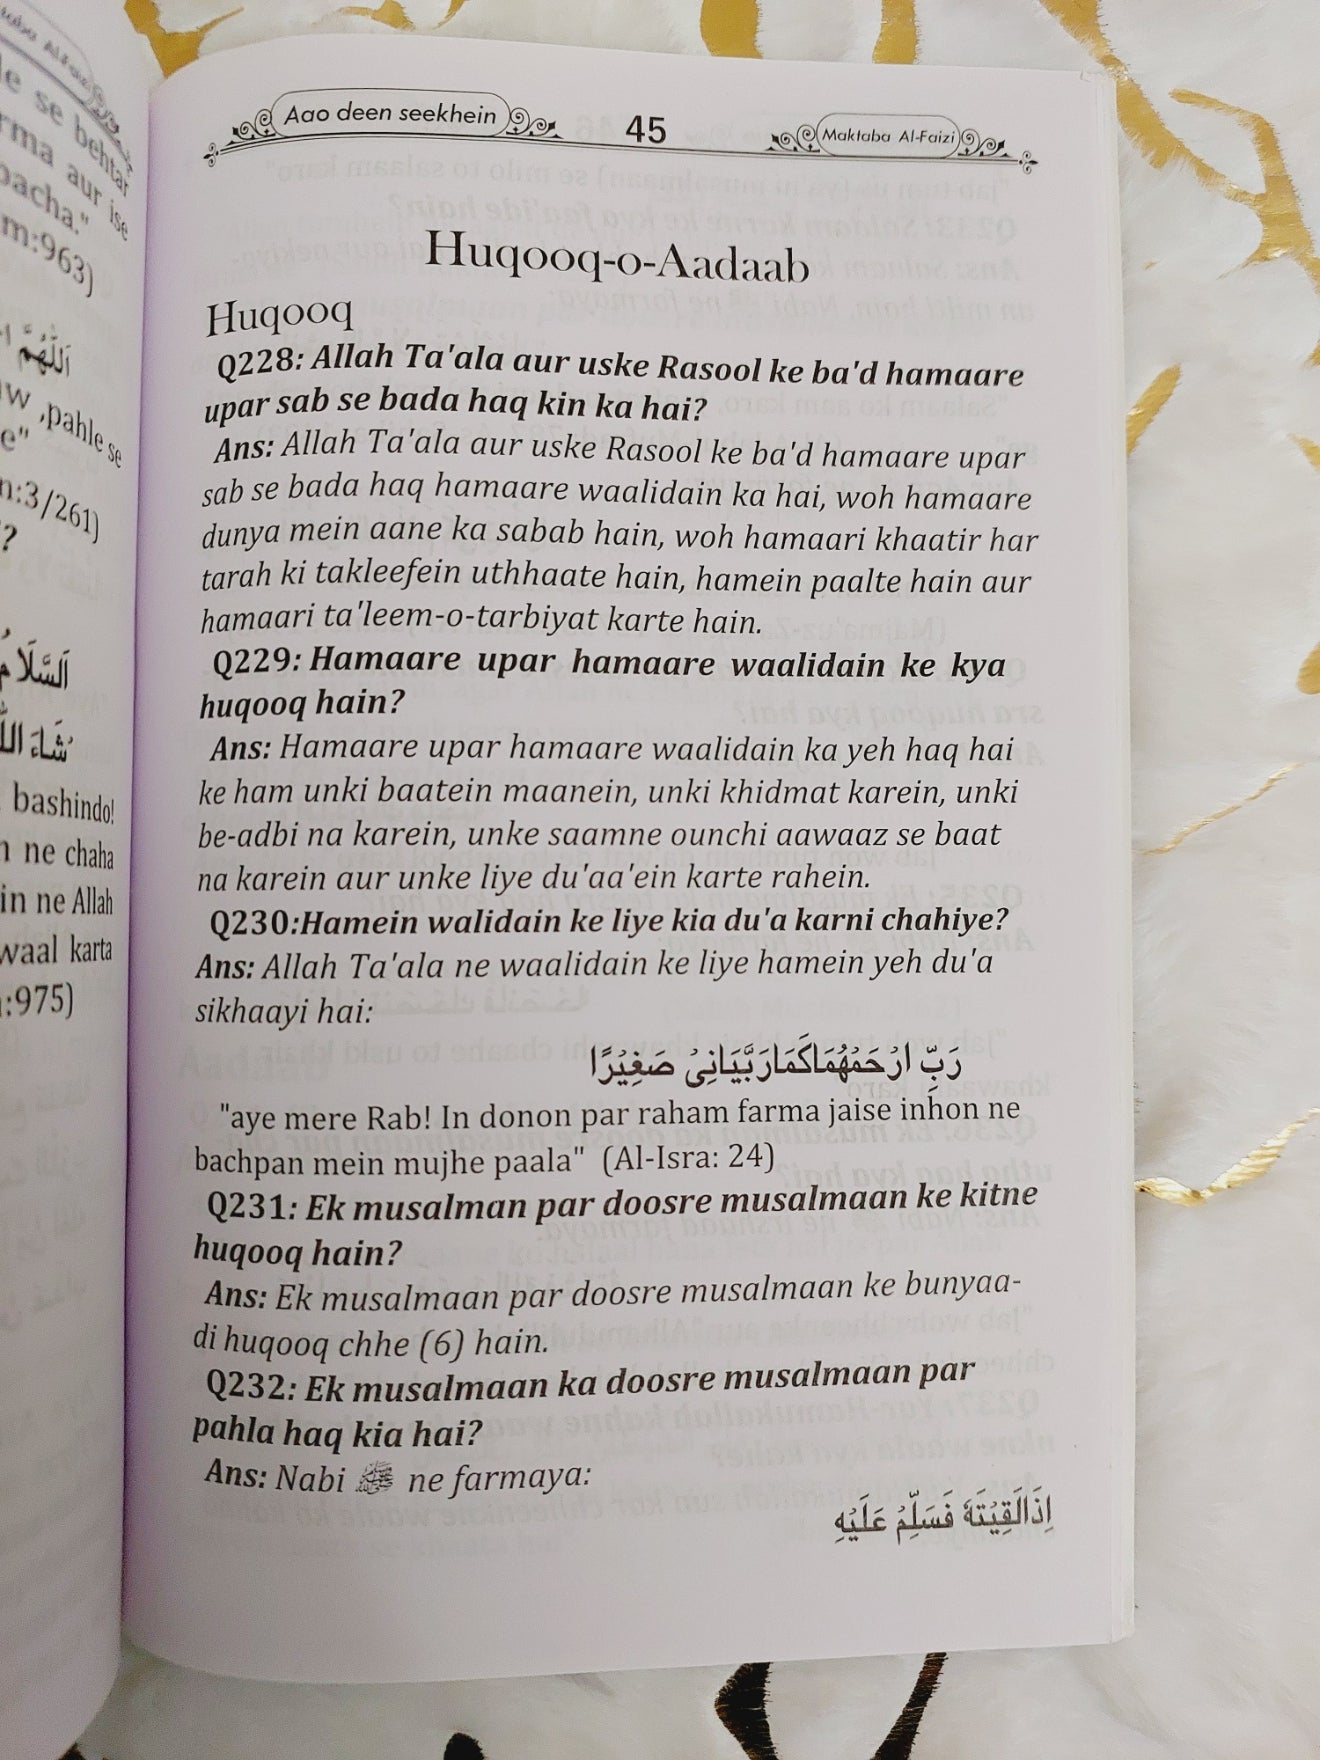 le se behtar
rma aur ise
bacha."
m:963)
اَللّٰهُمَّ
,pahle se
e"
n:3/261)
?
اَلسَّلَامُ
bashindo!
n ne chaha
in ne Allah
waal karta
:975)
Aao deen seekhein 45 Maktaba Al-Faizi
Huqooq-o-Aadaab
Huqooq
Q228: Allah Ta'ala aur uske Rasool ke ba'd hamaare
upar sab se bada haq kin ka hai?
Ans: Allah Ta'ala aur uske Rasool ke ba'd hamaare upar
sab se bada haq hamaare waalidain ka hai, woh hamaare
dunya mein aane ka sabab hain, woh hamaari khaatir har
tarah ki takleefein uthhaate hain, hamein paalte hain aur
hamaari ta'leem-o-tarbiyat karte hain.
Q229: Hamaare upar hamaare waalidain ke kya
huqooq hain?
Ans: Hamaare upar hamaare waalidain ka yeh haq hai
ke ham unki baatein maanein, unki khidmat karein, unki
be-adbi na karein, unke saamne ounchi aawaaz se baat
na karein aur unke liye du'aa'ein karte rahein.
Q230:Hamein walidain ke liye kia du'a karni chahiye?
Ans: Allah Ta'ala ne waalidain ke liye hamein yeh du'a
sikhaayi hai:
رَبِّ ارْحَمْهُمَاكَمَارَبَّيَانِىْ صَغِيْرًا
"aye mere Rab! In donon par raham farma jaise inhon ne
bachpan mein mujhe paala" (Al-Isra: 24)
Q231: Ek musalman par doosre musalmaan ke kitne
huqooq hain?
Ans: Ek musalmaan par doosre musalmaan ke bunyaa-
di huqooq chhe (6) hain.
Q232: Ek musalmaan ka doosre musalmaan par
pahla haq kia hai?
Ans: Nabi ﷺ ne farmaya:
اِذَالَقِيْتَهٗ فَسَلِّمْ عَلَيْهِ